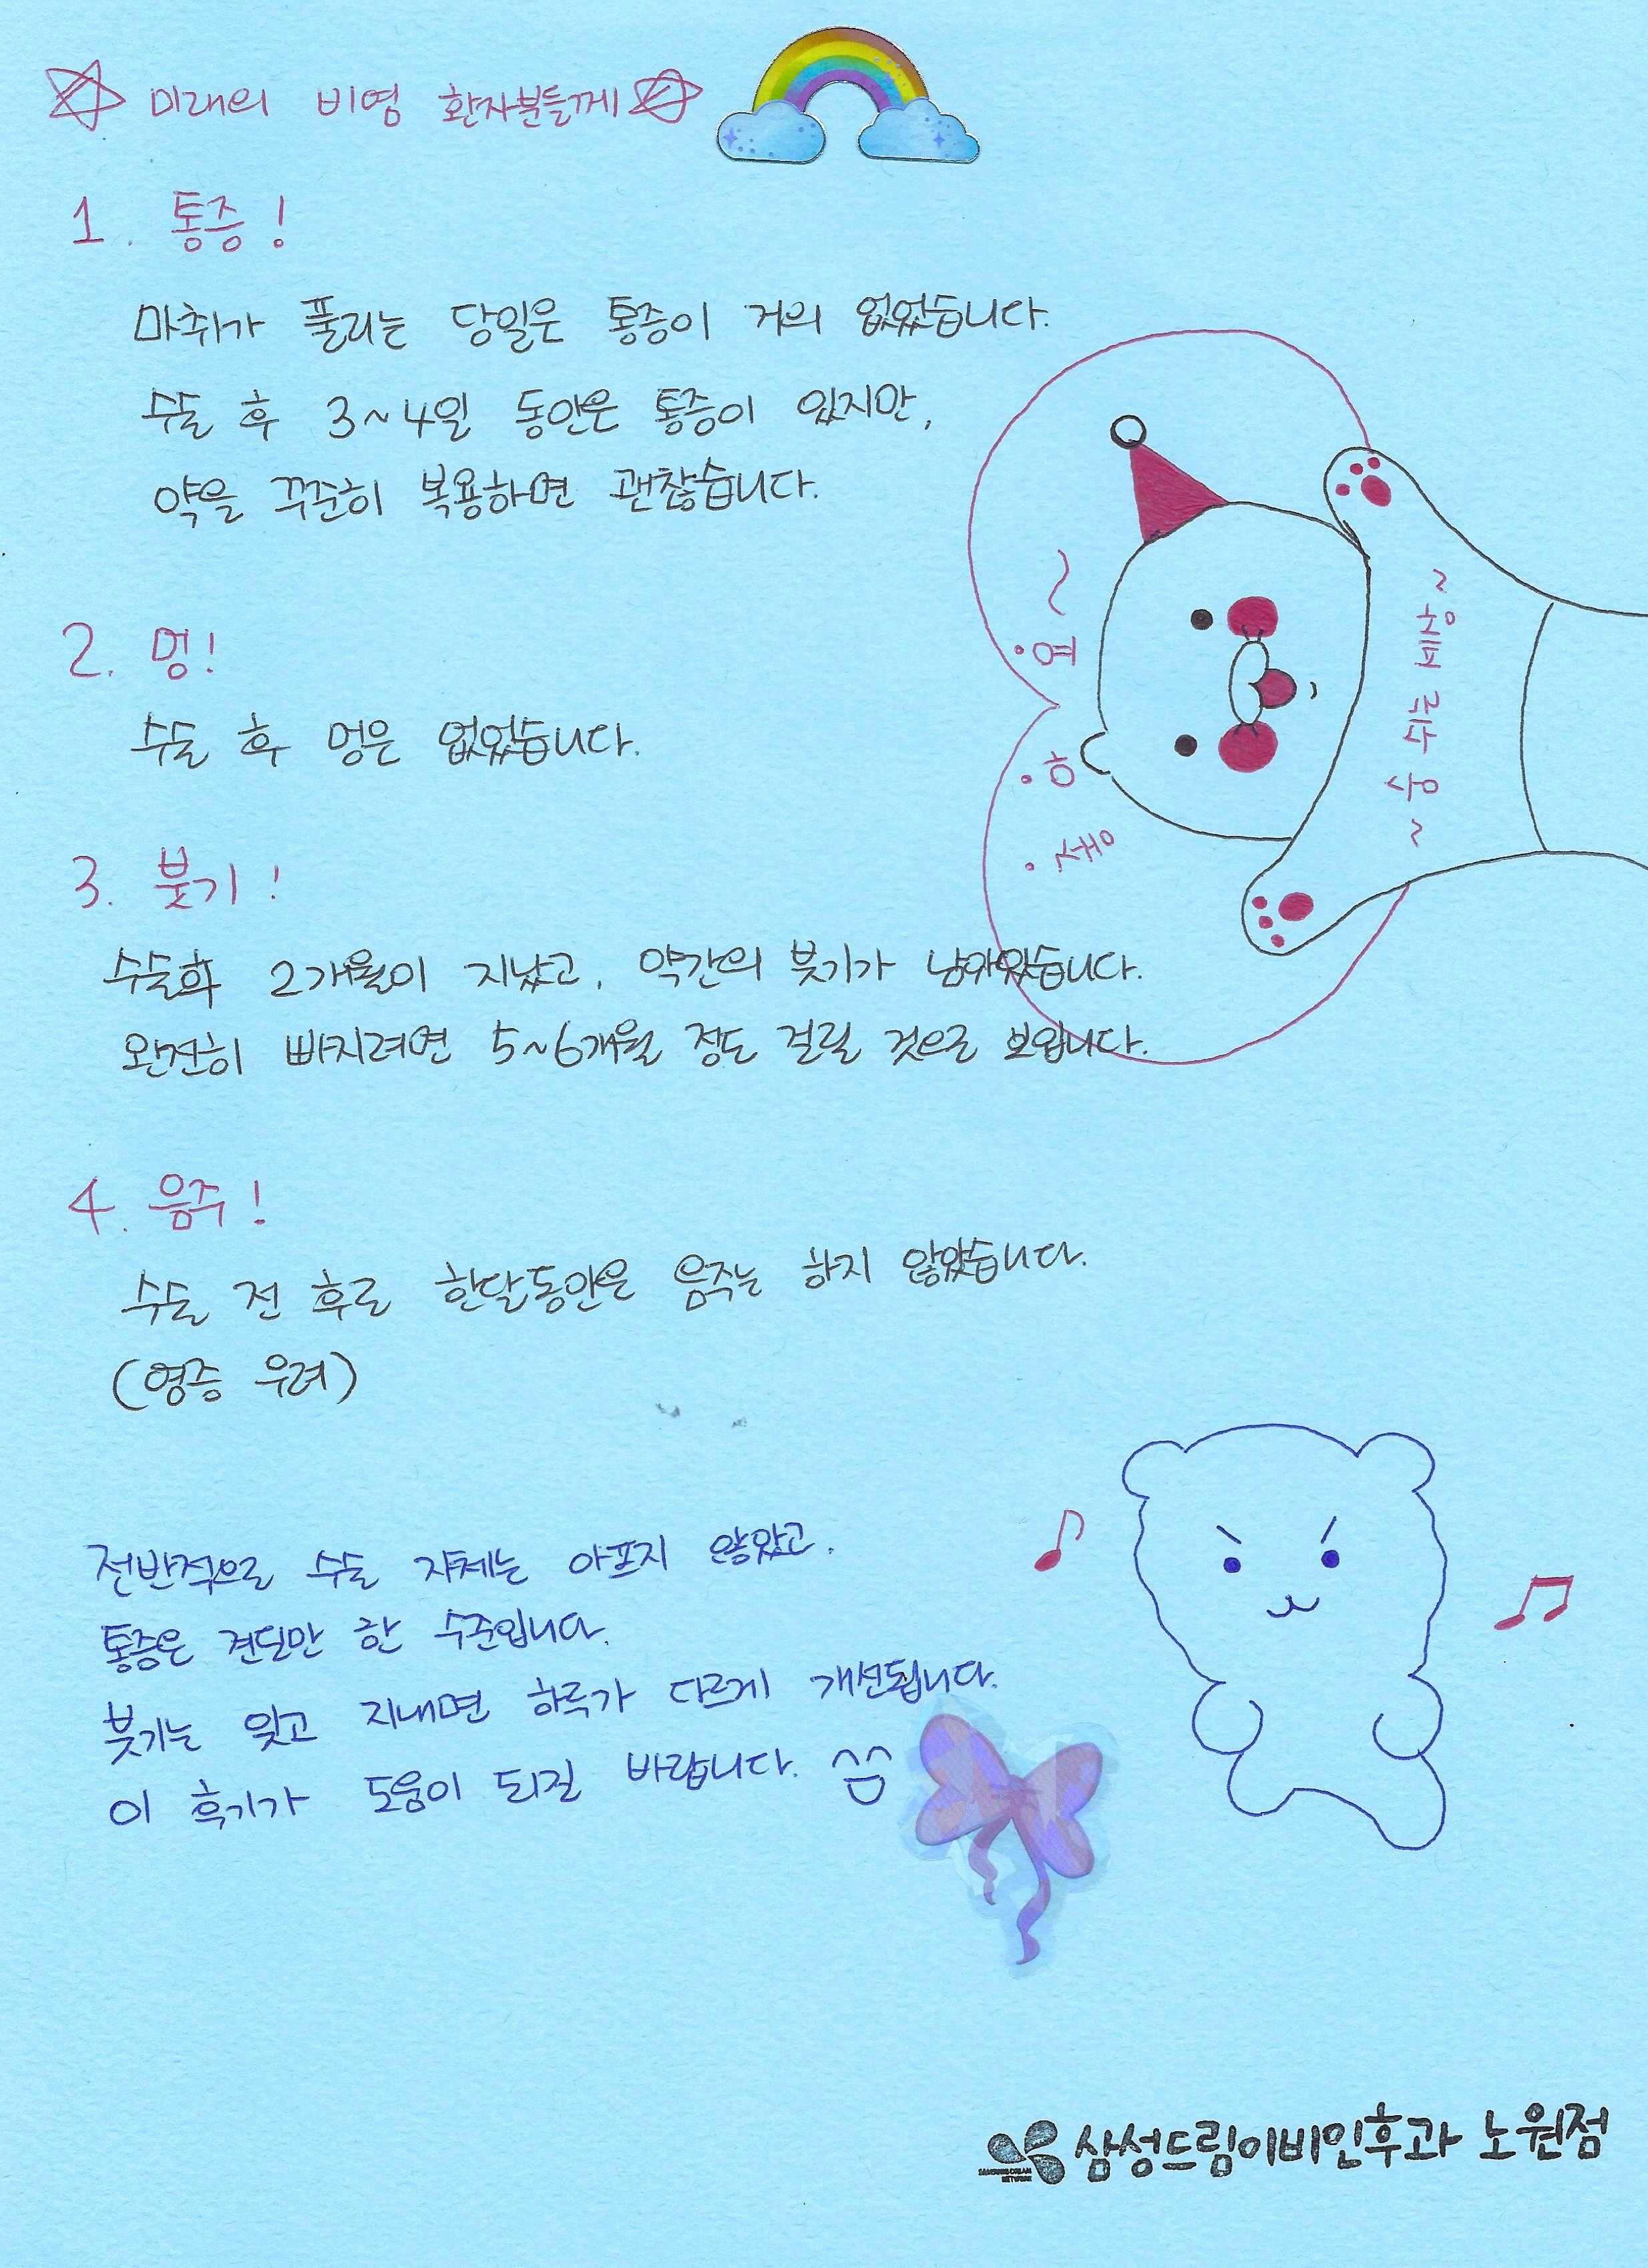 미래의 비염 환자분들께
1. 통증!
마취가 풀리는 당일은 통증이 거의 없었습니다.
수술 후 3~4일 동안은 통증이 있지만,
약을 꾸준히 복용하면 괜찮습니다.
2. 멍!
수술 후 멍은 없었습니다.
3. 붓기!
수술후 2개월이 지났고, 약간의 붓기가 남아있습니다.
완전히 빠지려면 5~6개월 정도 걸릴 것으로 보입니다.
4. 음주!
수술 전 후로 한달동안은 음주는 하지 않았습니다.
(염증 우려)
전반적으로 수술 자체는 아프지 않았고,
통증은 견딜만 한 수준입니다.
붓기는 잊고 지내면 하루가 다르게 개선됩니다.
이 후기가 도움이 되길 바랍니다.
삼성드림이비인후과 노원점
SAMSUNG DREAM
NETWORK